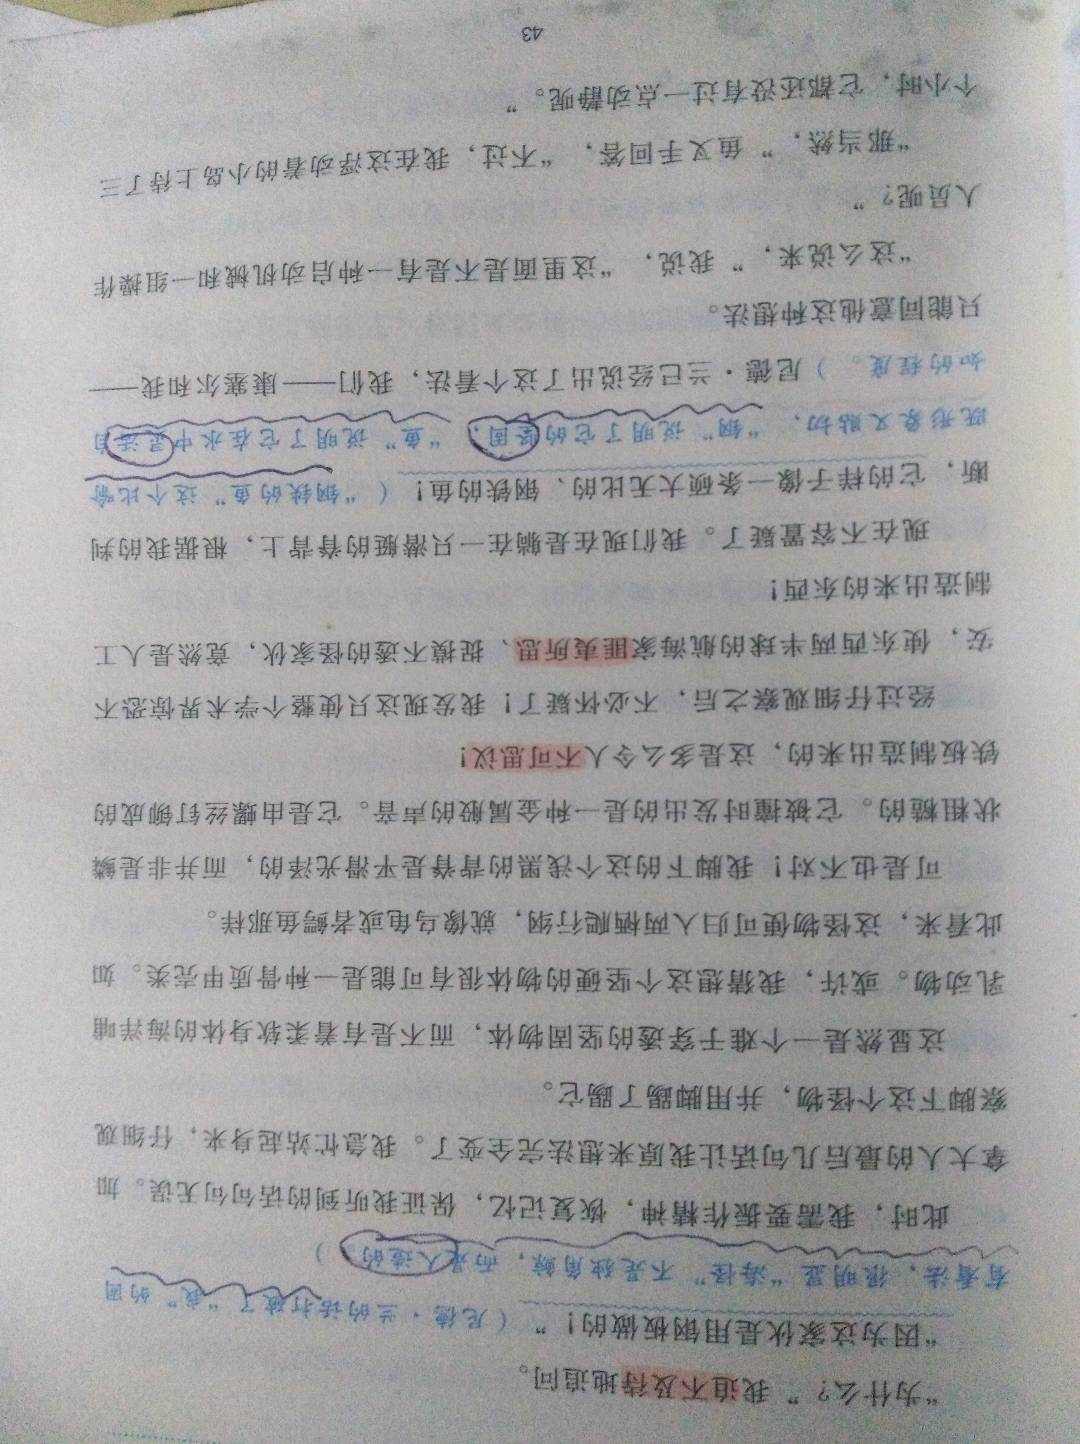 “为什么？”我迫不及待地追问。
“因为这家伙是用钢板做的！”（尼德·兰的话打破了“我”的固
有看法，很明显“海怪”不是独角鲸，而是人造的。）
此时，我需要振作精神，恢复记忆，保证我听到的话句句无误。加
拿大人的最后几句话让我原来想法完全变了。我急忙站起身来，仔细观
察脚下这个怪物，并用脚踢了踢它。
这显然是一个难于穿透的坚固物体，而不是有着柔软身体的海洋哺
乳动物。或许，我猜想这个坚硬的物体很有可能是一种骨质甲壳类。如
此看来，这怪物便可归入两栖爬行纲，就像乌龟或者鳄鱼那样。
可是也不对！我脚下的这个浅黑的背脊是平滑光泽的，而并非是鳞
状粗糙的。它被撞时发出的是一种金属般的声音。它是由螺丝钉铆成的
铁板制造出来的，这是多么令人不可思议！
经过仔细观察之后，不必怀疑了！我发现这只使整个学术界惊恐不
安，使东西两半球的航海家匪夷所思、捉摸不透的怪家伙，竟然是人工
制造出来的东西！
现在不容置疑了。我们现在是躺在一只潜艇的脊背上，根据我的判
断，它的样子像一条硕大无比的、钢铁的鱼！（“钢铁的鱼”这个比喻
既形象又贴切，“钢”说明了它的坚固，“鱼”说明了它在水中灵活自
如的程度。）尼德·兰已经说出了这个看法，我们——康塞尔和我——
只能同意他这种想法。
“这么说来，”我说，“这里面是不是有一种启动机械和一组操作
人员呢？”
“那当然，”鱼叉手回答，“不过，我在这浮动着的小岛上待了三
个小时，它都还没有过一点动静呢。”
43